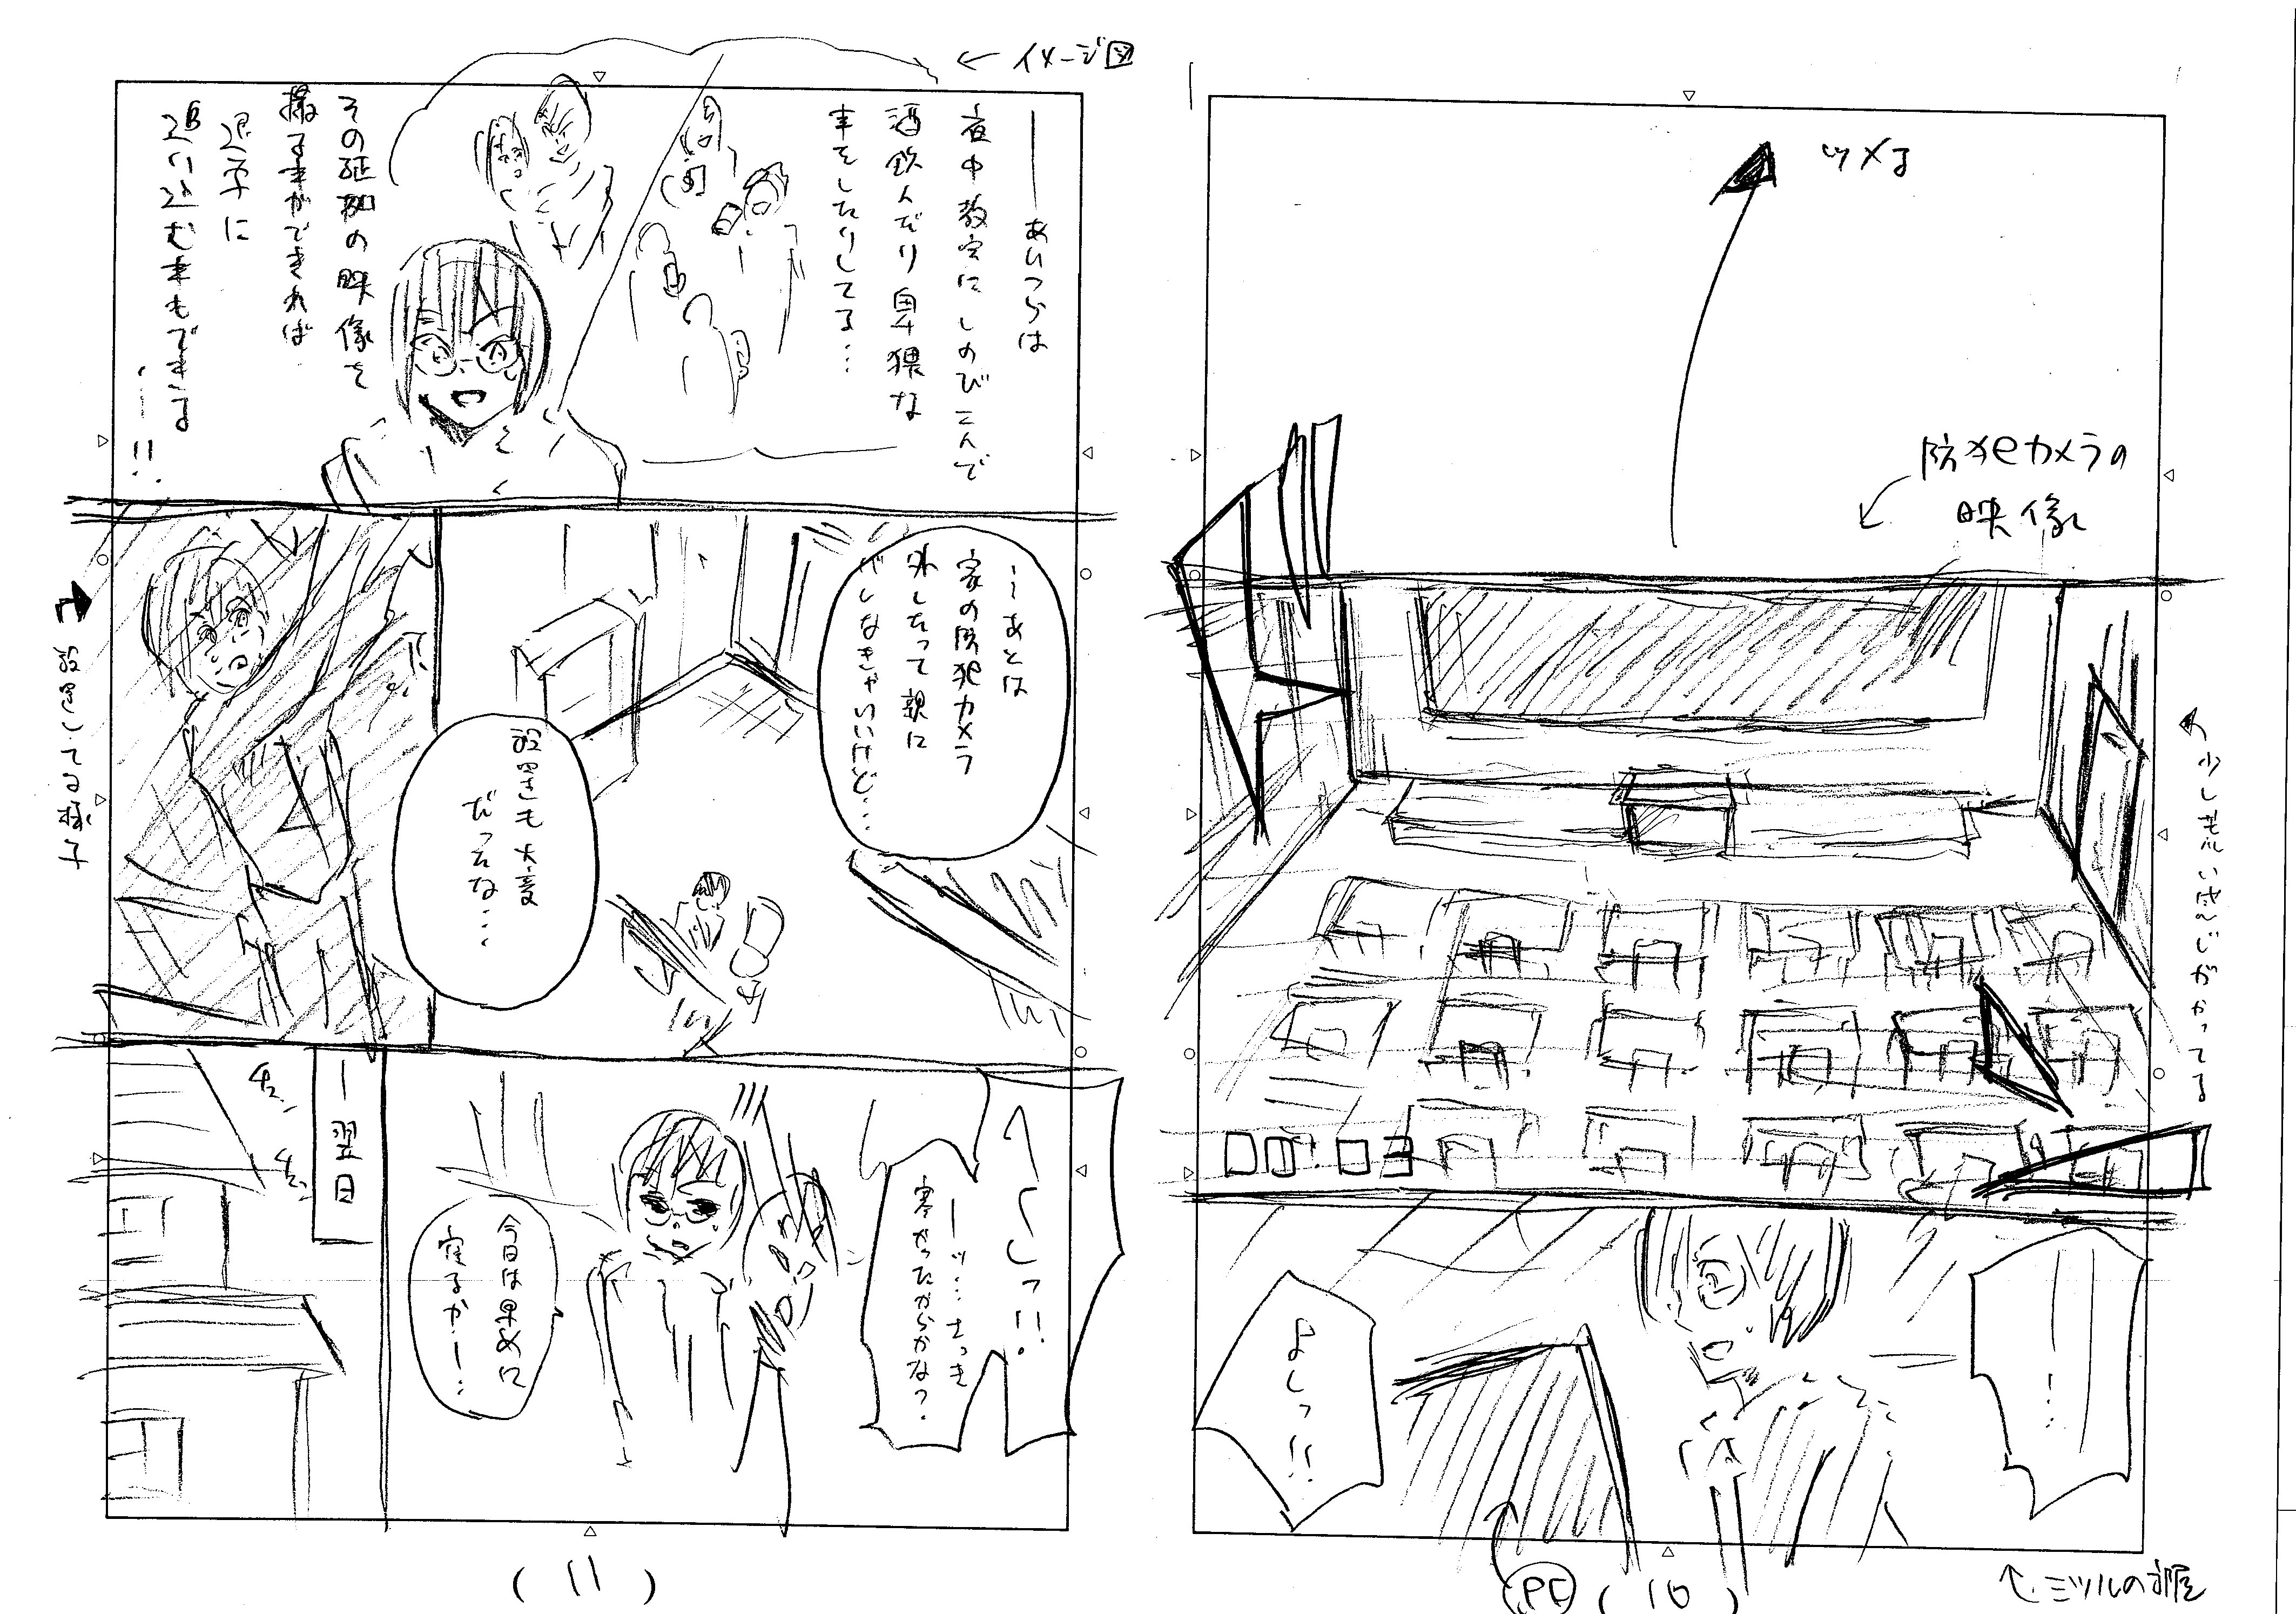 ツメる
防犯カメラの
映像
少し荒い感じがかってる
00:03
…
よしっ!!
PC
(10)
ミツルの部屋
イメージ図
――あいつらは
夜中教室にしのびこんで
酒飲んだり卑猥な
事をしたりしてる…
その証拠の映像を
撮る事ができれば
退学に
追い込む事もできる
…!!
―あとは
家の防犯カメラ
外したって親に
バレなきゃいいけど…
設置も大変
だったな…
設置してる様子
へくしっ!!
―ッ…さっき
寒かったからかな?
今日は早めに
寝るかー…
―翌日
チュン
チュン
(11)